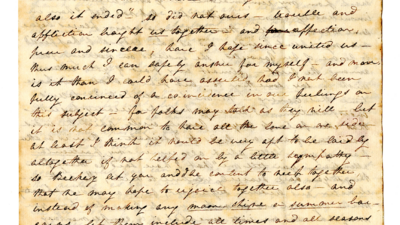 also it ended" – so did not ours – trouble and
affliction brought us together – and affection,
pure and sincere, have I hope since united us –
thus much I can safely answer for myself – and more
is it than I could have asserted had I not been
fully convinced of a coincidence in our feelings on
this subject – for folks may talk as they will – but
it is not common to have all the love on one side
at least I think it would be very apt to be laid by
altogether if not helped on by a little sympathy –
so and be content to weep together
that we may hope to rejoice together also – and
instead of making any moon shine or summer bar
let them include all times and all seasons